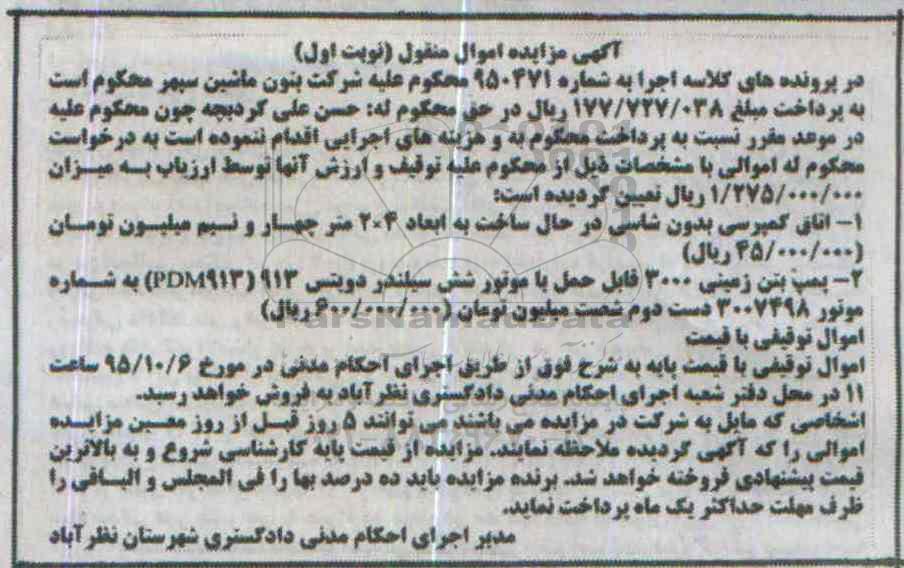 آگهی مزایده اموال منقول (نوبت اول)
در پرونده های کلاسه اجرا به شماره ۹۵۰۴۷۱ محکوم علیه شرکت بتون ماشین سپهر محکوم است
به پرداخت مبلغ ۱۷۷/۷۲۷/۰۳۸ ریال در حق محکوم له: حسن علی کردبچه چون محکوم علیه
در موعد مقرر نسبت به پرداخت محکوم به و هزینه های اجرایی اقدام ننموده است به درخواست
محکوم له اموالی با مشخصات ذیل از محکوم علیه توقیف و ارزش آنها توسط ارزیاب به میزان
۱/۲۷۵/۰۰۰/۰۰۰ ریال تعیین گردیده است:
۱– اتاق کمپرسی بدون شاسی در حال ساخت به ابعاد ۴×۲ متر چهار و نیم میلیون تومان
(۴۵/۰۰۰/۰۰۰ ریال)
۲– پمپ بتن زمینی ۳۰۰۰ قابل حمل با موتور شش سیلندر دویتس ۹۱۳ (PDM۹۱۳) به شماره
موتور ۳۰۰۷۴۹۸ دست دوم شصت میلیون تومان (۶۰۰/۰۰۰/۰۰۰ ریال)
اموال توقیفی با قیمت
اموال توقیفی با قیمت پایه به شرح فوق از طریق اجرای احکام مدنی در مورخ ۹۵/۱۰/۶ ساعت
۱۱ در محل دفتر شعبه اجرای احکام مدنی دادگستری نظر آباد به فروش خواهد رسید.
اشخاصی که مایل به شرکت در مزایده می باشند می توانند ۵ روز قبل از روز معین مزایده
اموالی را که آگهی گردیده ملاحظه نمایند. مزایده از قیمت پایه کارشناسی شروع و به بالاترین
قیمت پیشنهادی فروخته خواهد شد. برنده مزایده باید ده درصد بها را فی المجلس و الباقی را
ظرف مهلت حداکثر یک ماه پرداخت نماید.
مدیر اجرای احکام مدنی دادگستری شهرستان نظر آباد
ParsNamadData